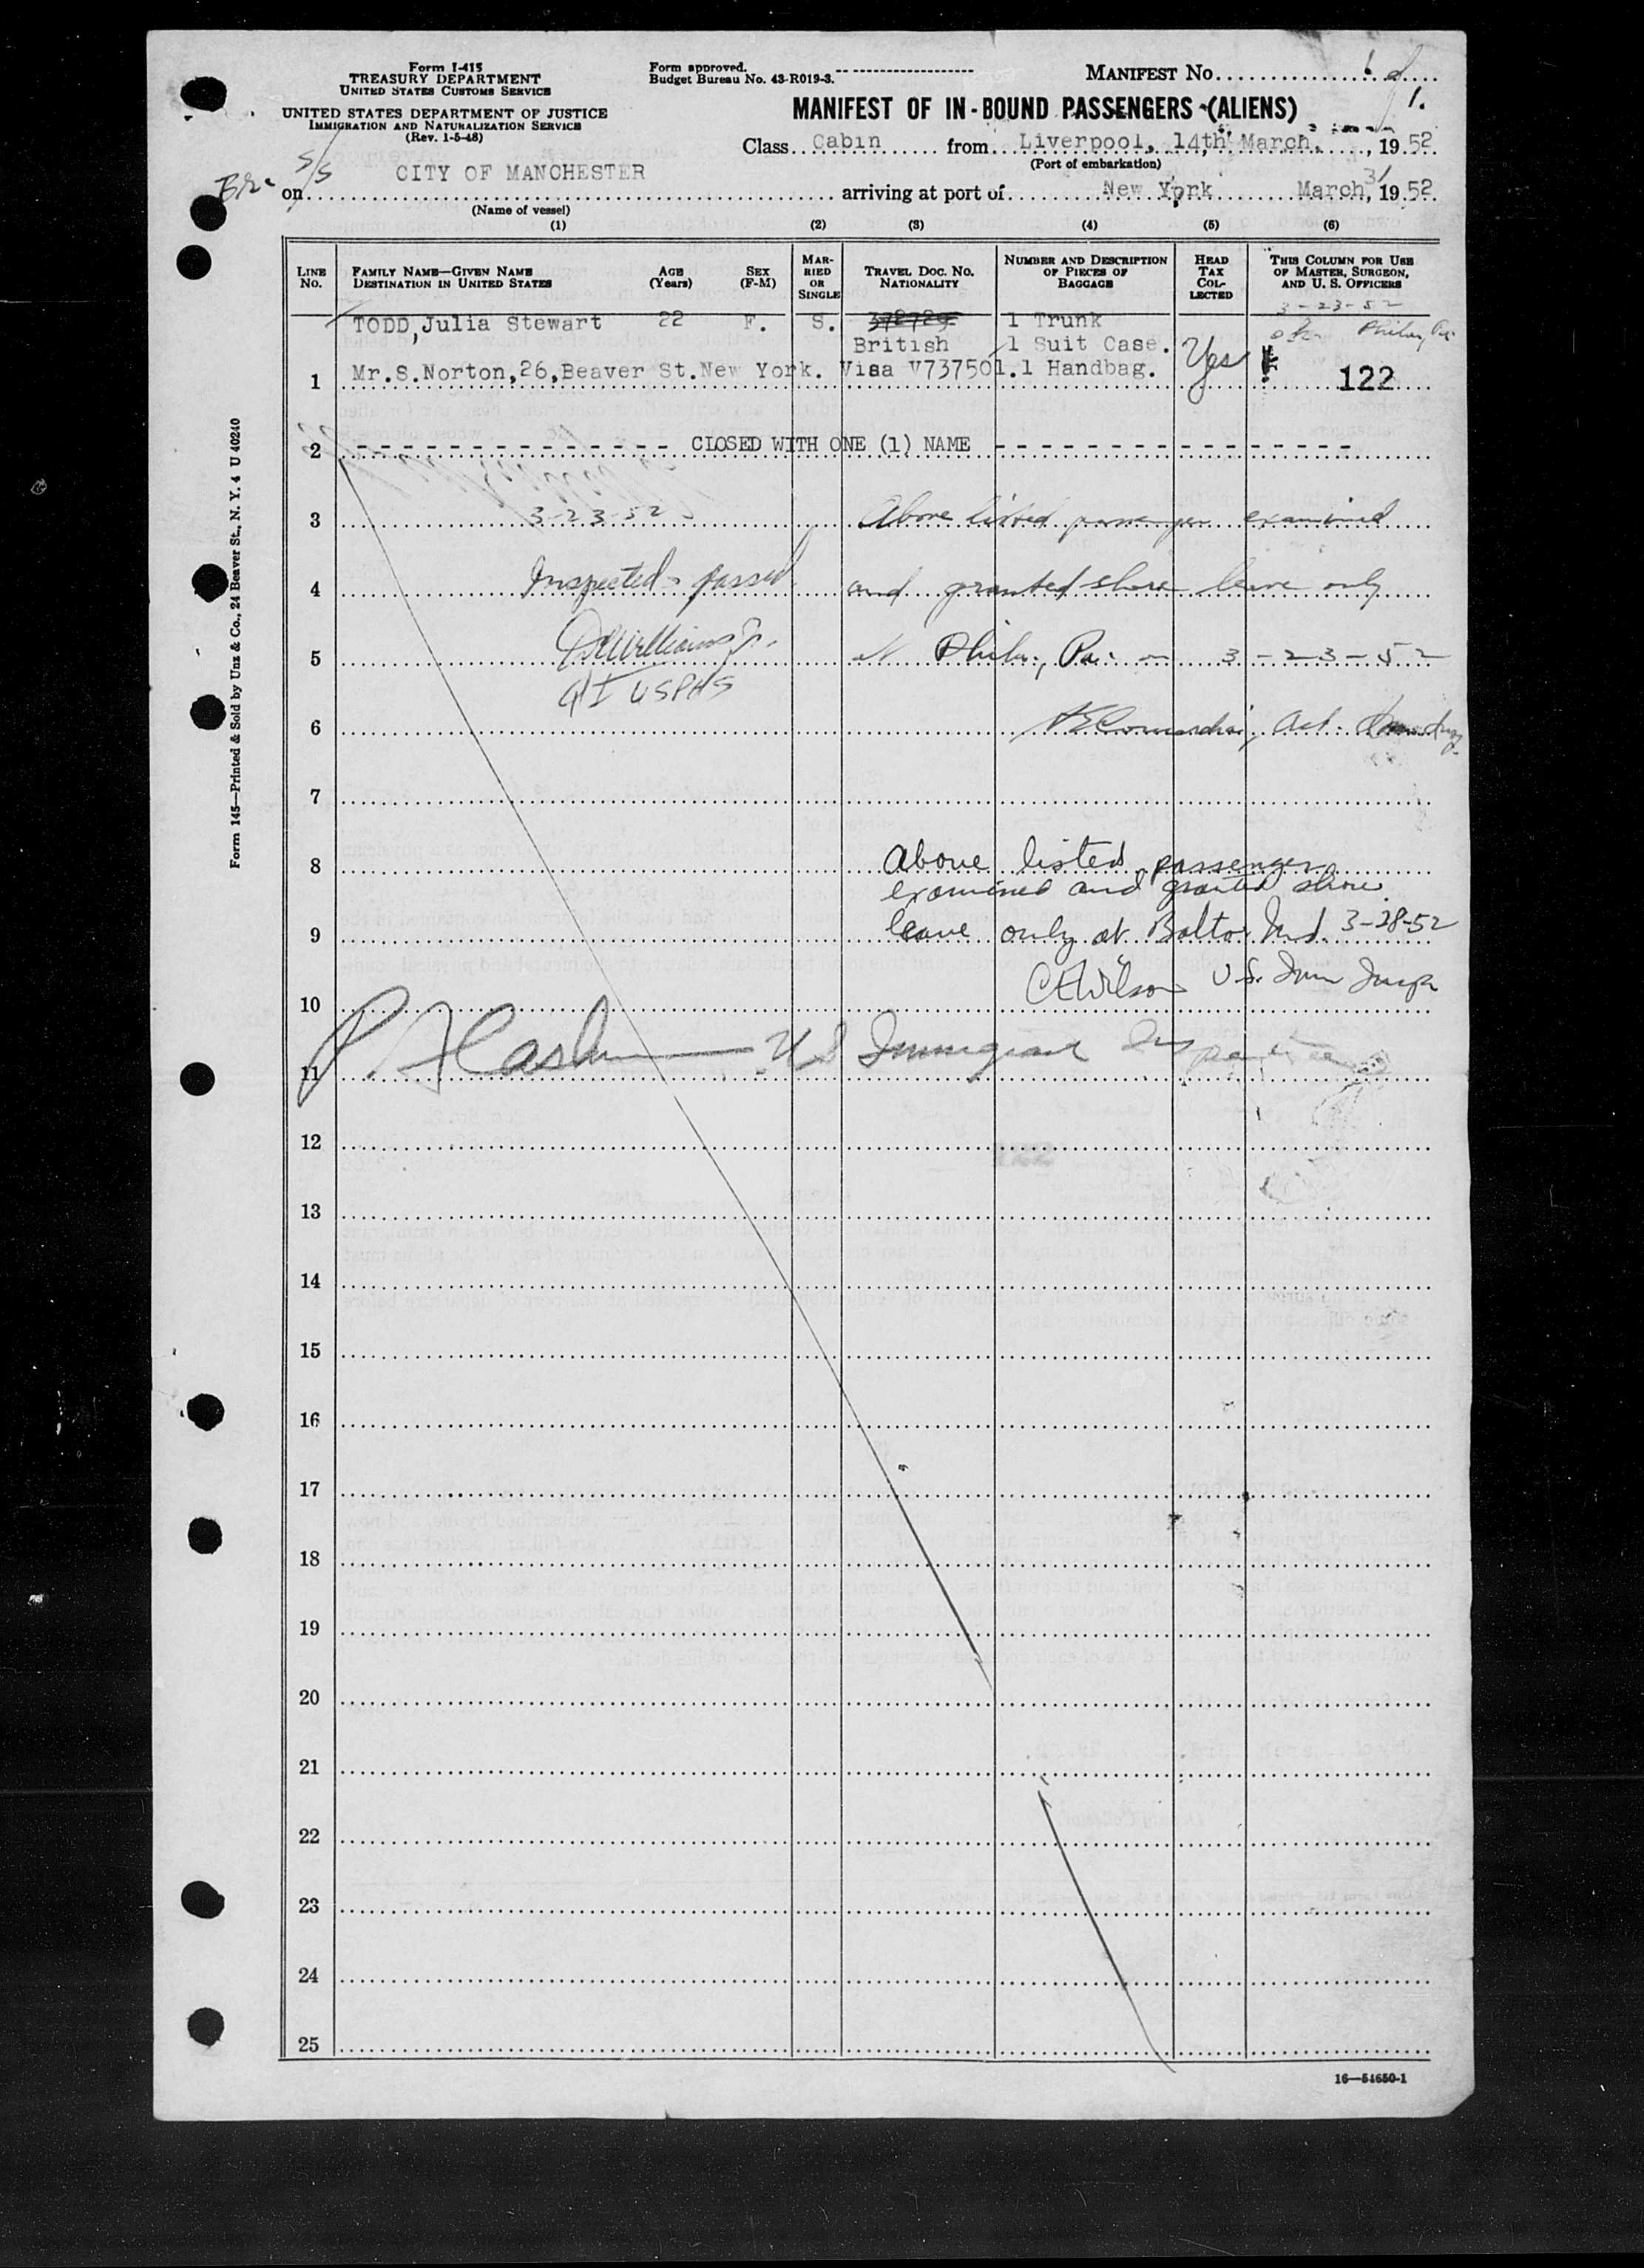 Form I-415
TREASURY DEPARTMENT
UNITED STATES CUSTOMS SERVICE
UNITED STATES DEPARTMENT OF JUSTICE
IMMIGRATION AND NATURALIZATION SERVICE
(Rev. 1-5-48)
Form approved.
Budget Bureau No. 43-R019-3.
MANIFEST No.
1.
MANIFEST OF IN-BOUND PASSENGERS (ALIENS)
Class Cabin from Liverpool, 14th March, 1952
(Port of embarkation)
Br. S/S
on CITY OF MANCHESTER arriving at port of New York March 31 1952
(Name of vessel)
(1) (2) (3) (4) (5) (6)
LINE No. FAMILY NAME—GIVEN NAME DESTINATION IN UNITED STATES AGE (Years) SEX (F-M) MARRIED OR SINGLE TRAVEL DOC. No. NATIONALITY NUMBER AND DESCRIPTION OF PIECES OF BAGGAGE HEAD TAX COLLECTED THIS COLUMN FOR USE OF MASTER, SURGEON, AND U. S. OFFICERS
3-23-52
TODD, Julia Stewart 22 F. S. 1 Trunk
British 1 Suit Case. Yes Phila, Pa.
1 Mr.S.Norton,26,Beaver St.New York. Visa V737501. 1 Handbag. 122
2 - - - - - CLOSED WITH ONE (1) NAME - - - - -
3 3-23-52 Above listed passenger examined
4 Inspected & passed and granted shore leave only
5 Williams Jr. at Phila., Pa. on 3-23-52
QI USPHS
6 Act.
7
8 Above listed passenger
examined and granted shore
9 leave only at Balto Md. 3-28-52
10 CE Wilson U.S. Imm Insp
11 U S Immigrant Inspector
12
13
14
15
16
17
18
19
20
21
22
23
24
25
16—54650-1
Form 145—Printed & Sold by Unz & Co., 24 Beaver St., N. Y. 4 U 40240